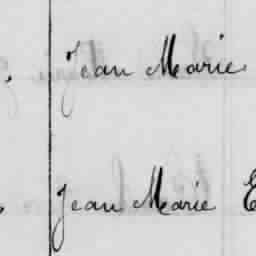 Jean Marie
Jean Marie E